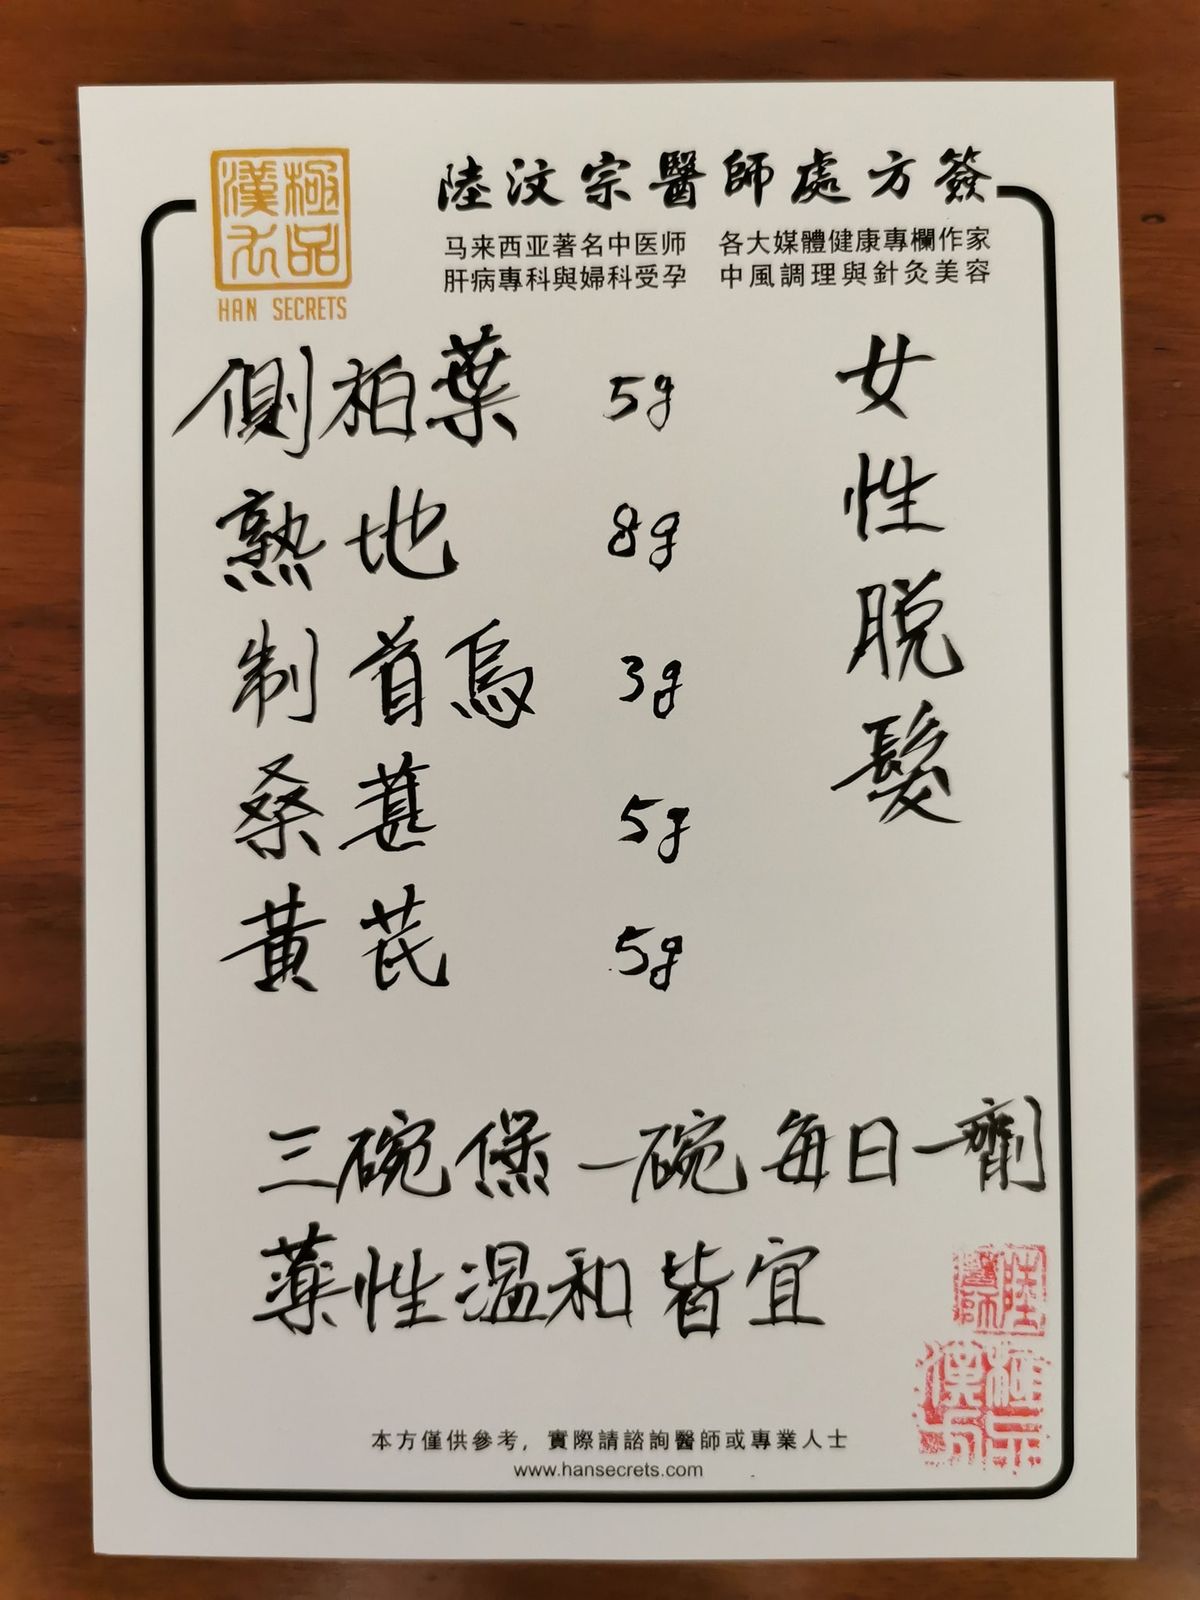 極品
漢方
HAN SECRETS
陸汶宗醫師處方簽
马来西亚著名中医师 各大媒體健康專欄作家
肝病專科與婦科受孕 中風調理與針灸美容
女性脱髮
側柏葉 5g
熟地 8g
制首烏 3g
桑葚 5g
黃芪 5g
三碗煲一碗每日一劑
藥性温和皆宜
陸醫師
本方僅供參考，實際請諮詢醫師或專業人士
www.hansecrets.com